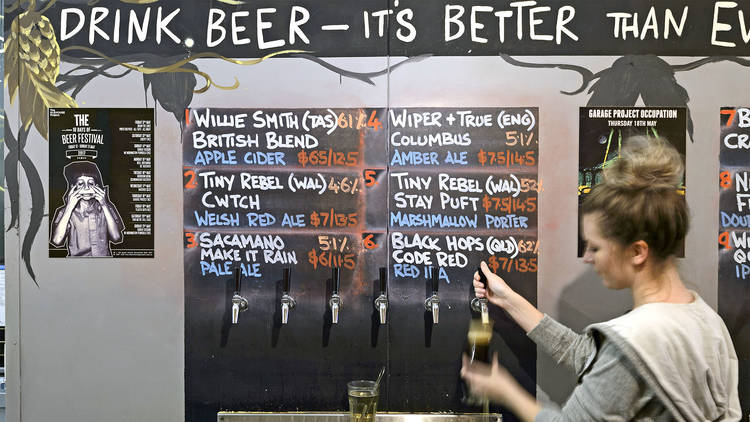 DRINK BEER – IT'S BETTER THAN EV
THE
30 DAYS OF
BEER FESTIVAL
1 WILLIE SMITH (TAS) 6.1%
BRITISH BLEND
APPLE CIDER $6.5/12.5
2 TINY REBEL (WAL) 4.6%
CWTCH
WELSH RED ALE $7/13.5
3 SACAMANO 5.1%
MAKE IT RAIN
PALE ALE $6/11.5
4 WIPER + TRUE (ENG)
COLUMBUS 5.1%
AMBER ALE $7.5/14.5
5 TINY REBEL (WAL) 5.2%
STAY PUFT $7.5/14.5
MARSHMALLOW PORTER
6 BLACK HOPS (QLD) 6.2%
CODE RED $7/13.5
RED IPA
GARAGE PROJECT OCCUPATION
THURSDAY 10TH MAY
7
8
9